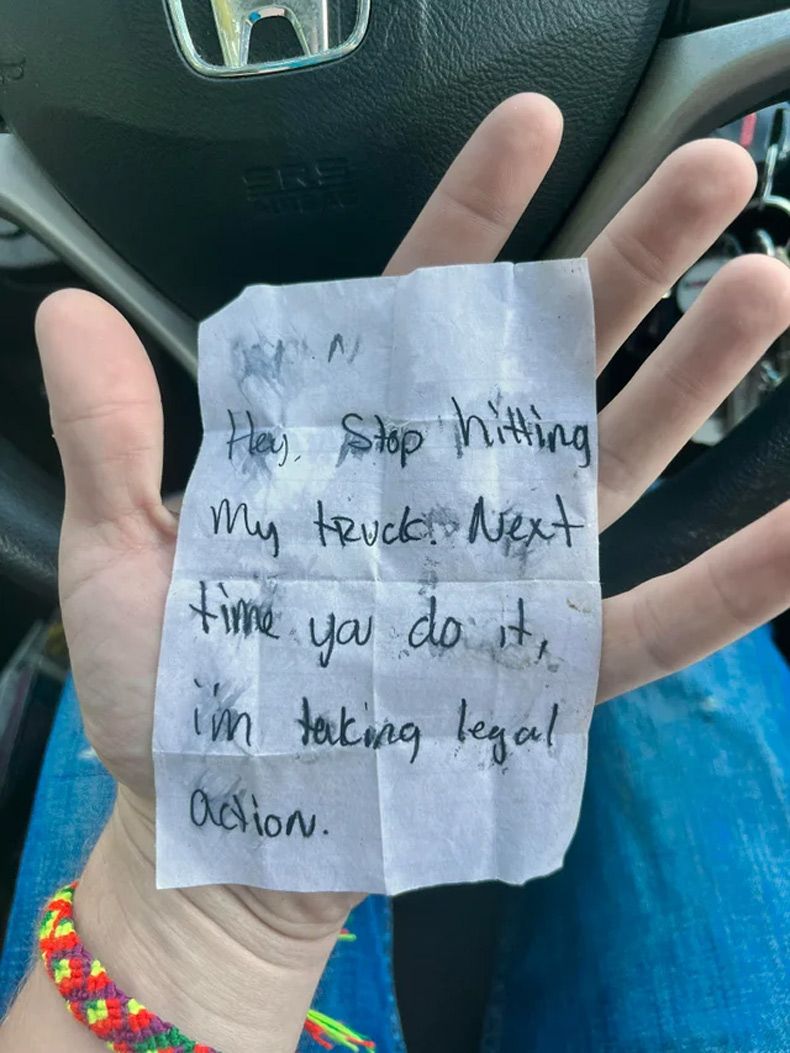 SRS
AIRBAG
Hey, Stop hitting
My truck. Next
time you do it,
i'm taking legal
action.